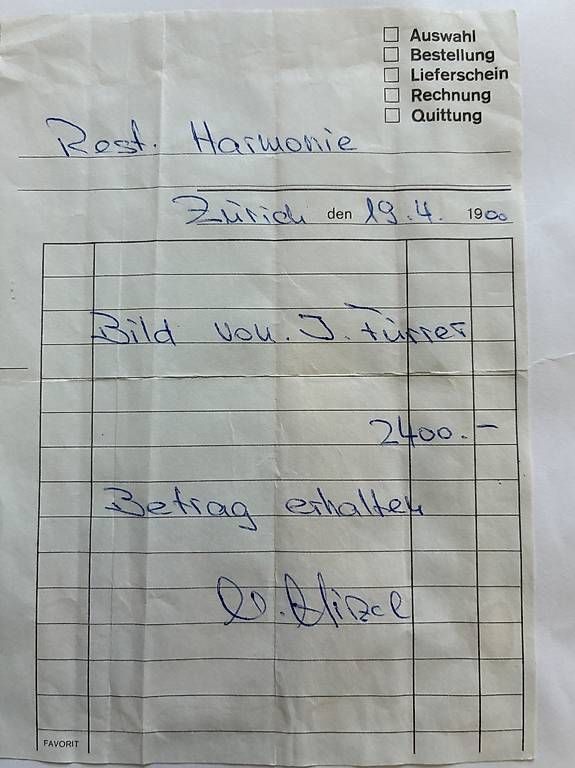 Auswahl
Bestellung
Lieferschein
Rechnung
Quittung
Rest. Harmonie
Zürich den 19.4. 1900
Bild von J. Furrer
2400.-
Betrag erhalten
FAVORIT